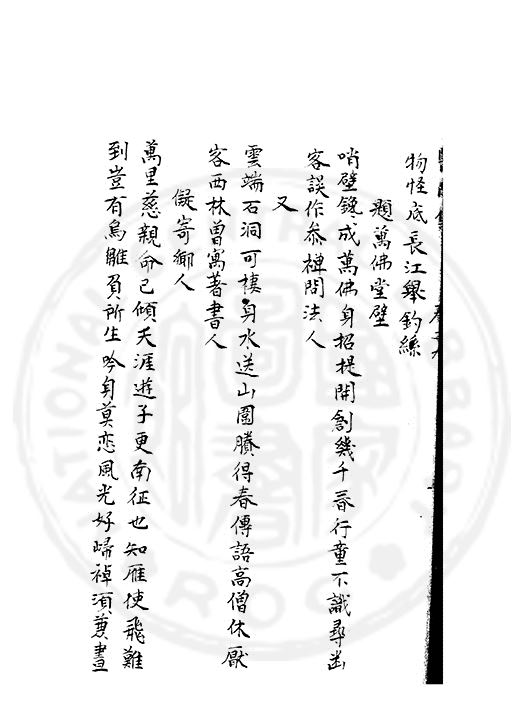 物怪底長江舉釣絲
題萬佛堂壁
哨壁鑱成萬佛身招提開創幾千春行童不識尋幽
客誤作叅禪問法人
又
雲端石洞可棲身水送山圍賸得春傳語高僧休厭
客西林曽寓著書人
儗寄鄉人
萬里慈親命已傾天涯遊子更南征也知雁使飛難
到豈有烏雛負所生吟身莫恋風光好歸棹須兼晝